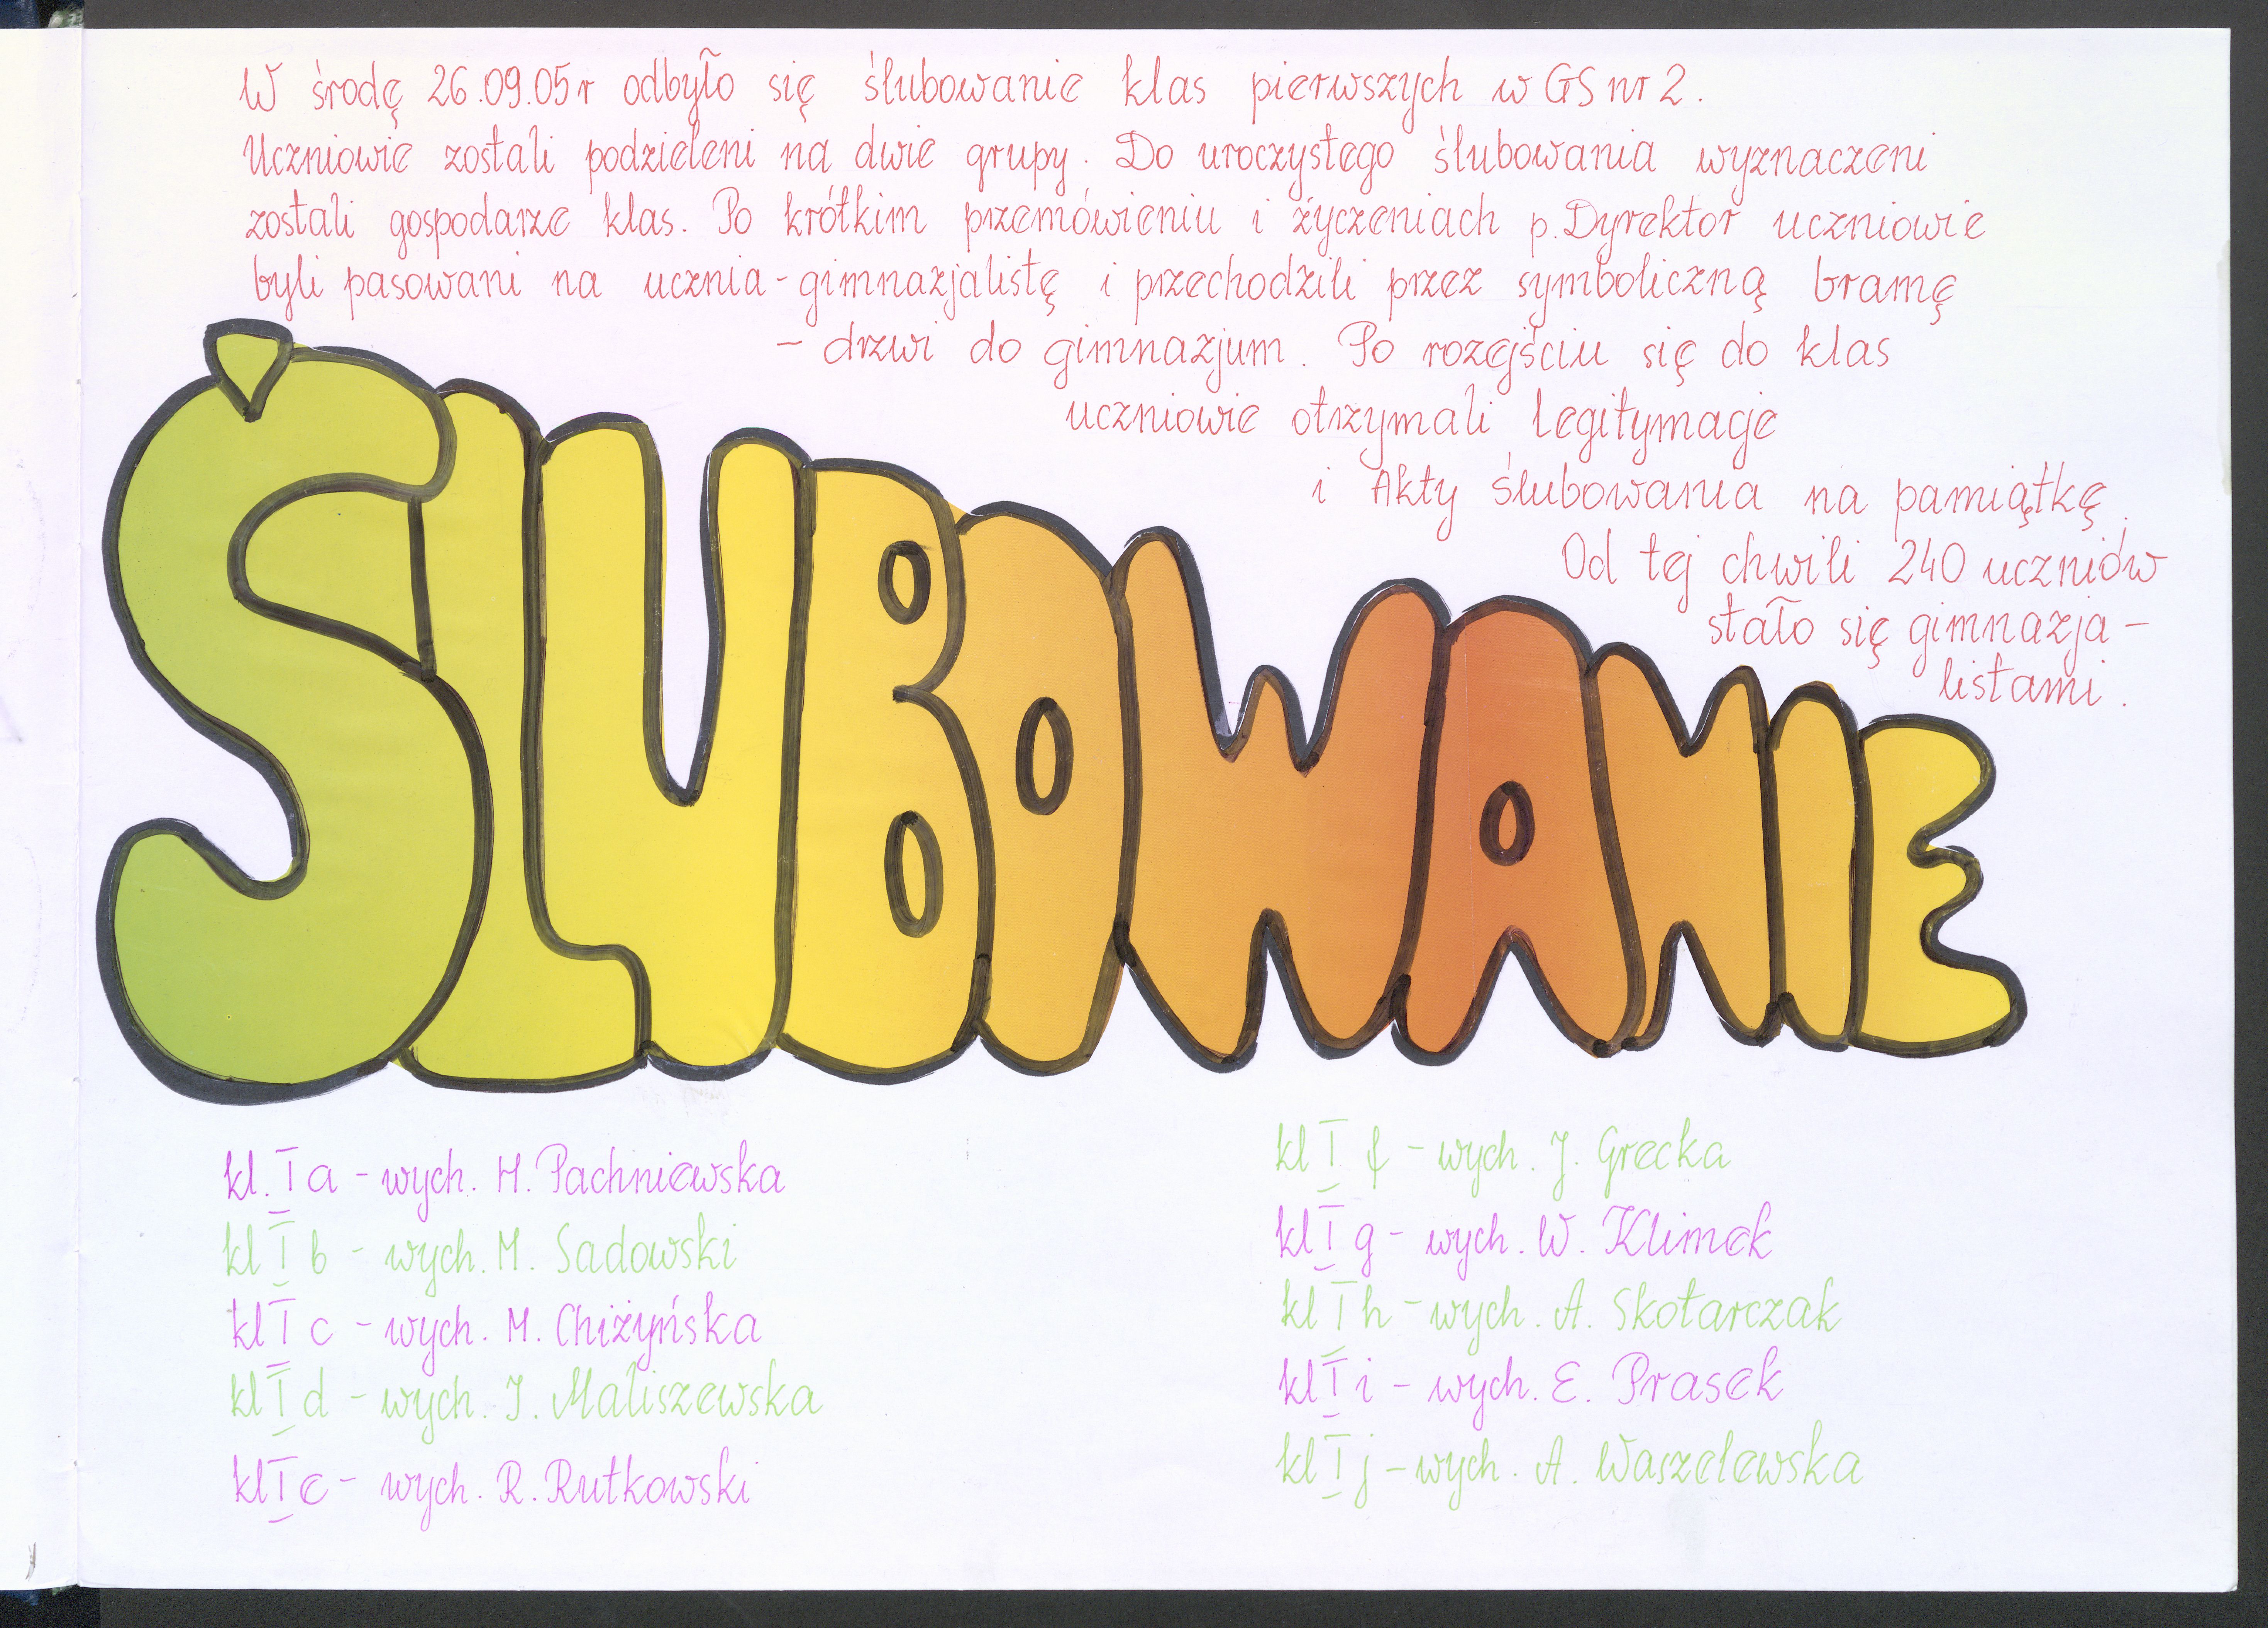 W środę 26.09.05r odbyło się ślubowanie klas pierwszych w GS nr 2.
Uczniowie zostali podzieleni na dwie grupy. Do uroczystego ślubowania wyznaczeni
zostali gospodarze klas. Po krótkim przemówieniu i życzeniach p. Dyrektor uczniowie
byli pasowani na ucznia - gimnazjalistę i przechodzili przez symboliczną bramę
- drzwi do gimnazjum. Po rozejściu się do klas
uczniowie otrzymali legitymacje
i Akty ślubowania na pamiątkę.
Od tej chwili 240 uczniów
stało się gimnazja-
listami.
ŚLUBOWANIE
kl. I a - wych. H. Pachniewska
kl I b - wych. M. Sadowski
kl I c - wych. M. Chiżyńska
kl I d - wych. J. Maliszewska
kl I e - wych. R. Rutkowski
kl I f - wych. J. Grecka
kl I g - wych. W. Klimek
kl I h - wych. A. Skotarczak
kl I i - wych. E. Prasek
kl I j - wych. A. Waszelewska